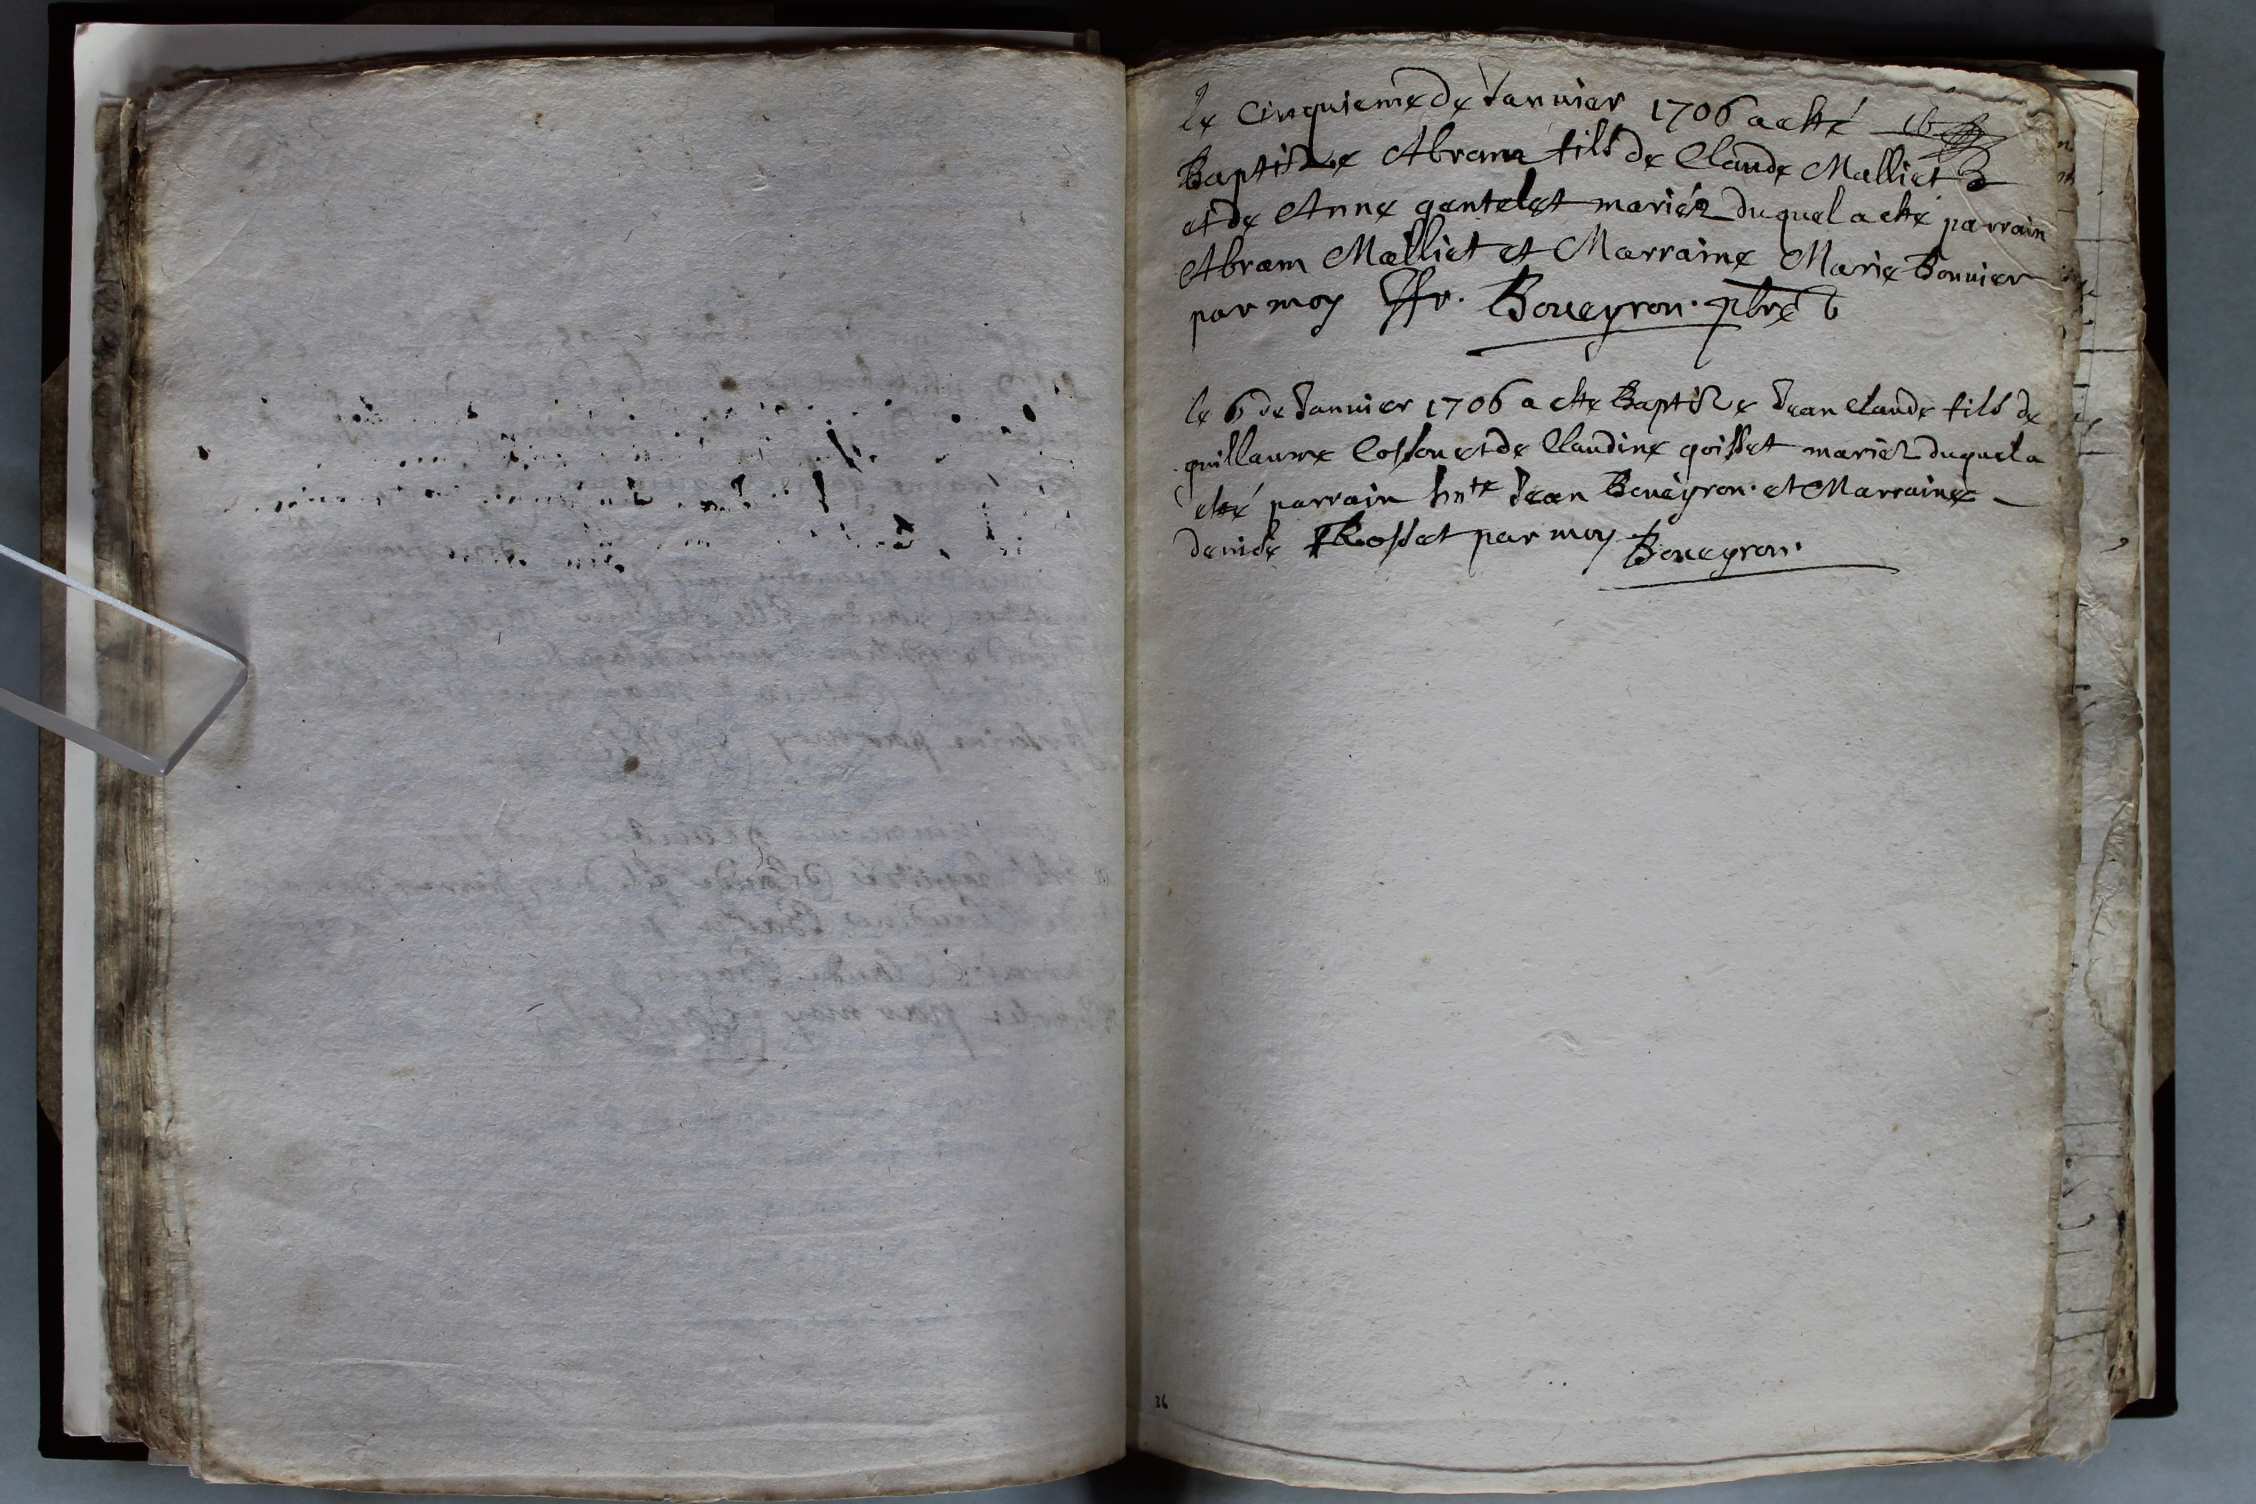 le cinquieme de Januier 1706 a esté
Baptisze Abram fils de Claude Malliet
et de Anne gentelet mariéz duquel a esté parrain
Abram Malliet et Marraine Marie Bonnier
par moy ffr. Boueyron. pbre
le 6 de Januier 1706 a este Baptisze Jean claude fils de
guillaume Cosson et de Claudine goisset mariez duquel a
esté parrain hnte Jean Boueyron. et Marraine
denise Rosset par moy
Boueyron.
36